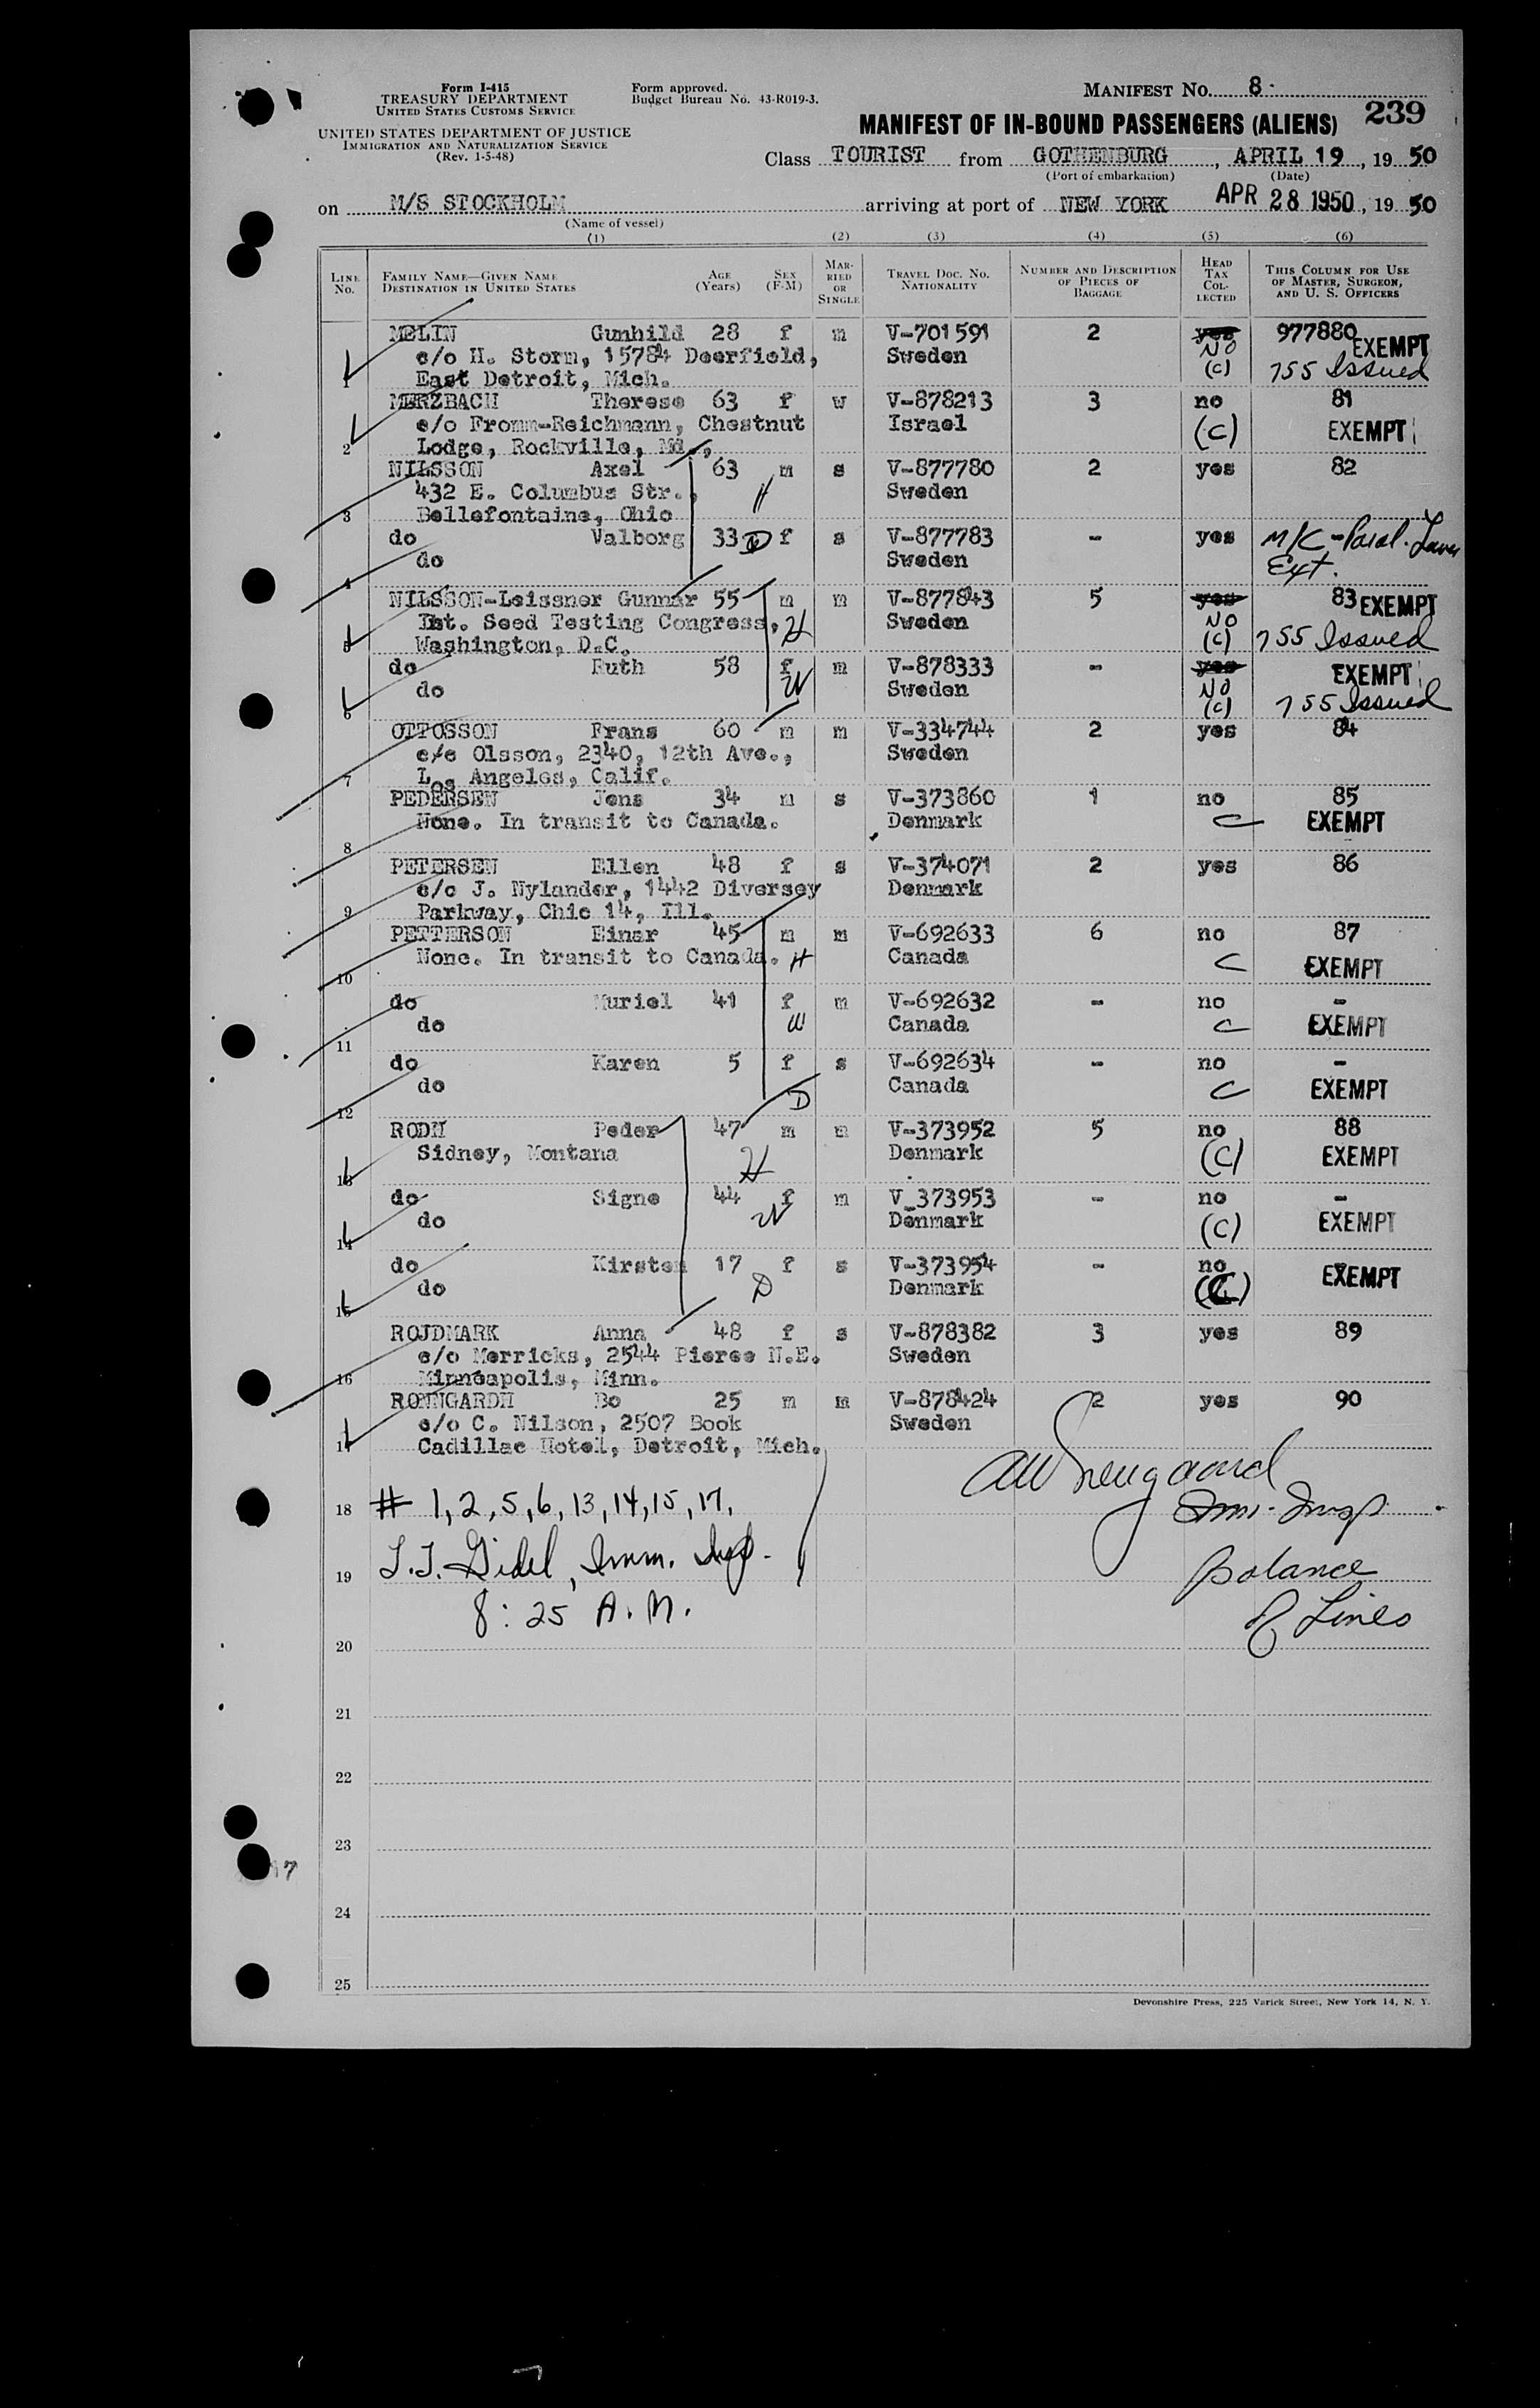 Form I-415
TREASURY DEPARTMENT
UNITED STATES CUSTOMS SERVICE
UNITED STATES DEPARTMENT OF JUSTICE
IMMIGRATION AND NATURALIZATION SERVICE
(Rev. 1-5-48)
Form approved.
Budget Bureau No. 43-R019-3.
MANIFEST NO. 8
239
MANIFEST OF IN-BOUND PASSENGERS (ALIENS)
Class TOURIST from GOTHENBURG, APRIL 19, 1950
(Port of embarkation) (Date)
on M/S STOCKHOLM arriving at port of NEW YORK APR 28 1950, 1950
(Name of vessel)
(1) (2) (3) (4) (5) (6)
LINE NO. FAMILY NAME—GIVEN NAME DESTINATION IN UNITED STATES AGE (Years) SEX (F-M) MARRIED OR SINGLE TRAVEL DOC. NO. NATIONALITY NUMBER AND DESCRIPTION OF PIECES OF BAGGAGE HEAD TAX COLLECTED THIS COLUMN FOR USE OF MASTER, SURGEON, AND U. S. OFFICERS
MELIN Gunhild 28 f m V-701591 2 yes 977880 EXEMPT
c/o H. Storm, 15784 Deerfield, Sweden No
1 East Detroit, Mich. (C) 755 Issued
MERZBACH Therese 63 f w V-878213 3 no 81
c/o Fromm-Reichmann, Chestnut Israel (C) EXEMPT
2 Lodge, Rockville, Md.,
NILSSON Axel 63 m s V-877780 2 yes 82
432 E. Columbus Str., H Sweden
3 Bellefontaine, Ohio
do Valborg 33 D f s V-877783 - yes M/C-Paral.
4 do Sweden Ext.
NILSSON-Leissner Gunnar 55 m m V-877843 5 yes 83 EXEMPT
Int. Seed Testing Congress, H Sweden No
5 Washington, D.C. (C) 755 Issued
do Ruth 58 f m V-878333 - yes EXEMPT
do W Sweden No
6 (C) 755 Issued
OTTOSSON Frans 60 m m V-334744 2 yes 84
c/o Olsson, 2340, 12th Ave., Sweden
7 Los Angeles, Calif.
PEDERSEN Jens 34 m s V-373860 1 no 85
None. In transit to Canada. Denmark C EXEMPT
8
PETERSEN Ellen 48 f s V-374071 2 yes 86
c/o J. Nylander, 1442 Diversey Denmark
9 Parkway, Chic 14, Ill.
PETTERSON Einar 45 m m V-692633 6 no 87
None. In transit to Canada. H Canada C EXEMPT
10
do Muriel 41 f m V-692632 - no -
do W Canada C EXEMPT
11
do Karen 5 f s V-692634 - no -
do D Canada C EXEMPT
12
RODH Peder 47 m m V-373952 5 no 88
Sidney, Montana H Denmark (C) EXEMPT
13
do Signe 44 f m V_373953 - no -
do W Denmark (C) EXEMPT
14
do Kirsten 17 f s V-373954 - no EXEMPT
do D Denmark (C)
15
ROJDMARK Anna 48 f s V-878382 3 yes 89
c/o Merricks, 2544 Pierce N.E. Sweden
16 Minneapolis, Minn.
RONNGARDH Bo 25 m m V-878424 2 yes 90
c/o C. Nilson, 2507 Book Sweden
17 Cadillac Hotel, Detroit, Mich.
18 # 1, 2, 5, 6, 13, 14, 15, 17. Imm. Insp.
19 Imm. Insp. Balance
8:25 A.M. of Lines
20
21
22
23
24
25
Devonshire Press, 225 Varick Street, New York 14, N. Y.